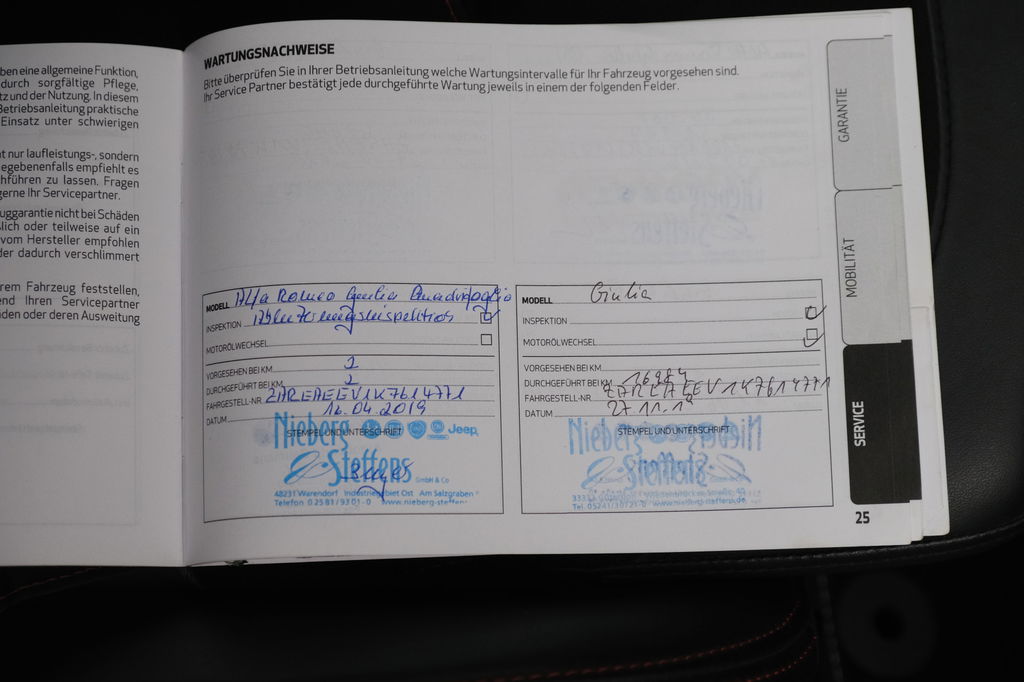 ben eine allgemeine Funktion,
durch sorgfältige Pflege,
tz und der Nutzung. In diesem
Betriebsanleitung praktische
Einsatz unter schwierigen
nt nur laufleistungs-, sondern
egebenenfalls empfiehlt es
hführen zu lassen. Fragen
gerne Ihr Servicepartner.
uggarantie nicht bei Schäden
lich oder teilweise auf ein
vom Hersteller empfohlen
der dadurch verschlimmert
rem Fahrzeug feststellen,
end Ihren Servicepartner
den oder deren Ausweitung
WARTUNGSNACHWEISE
Bitte überprüfen Sie in Ihrer Betriebsanleitung welche Wartungsintervalle für Ihr Fahrzeug vorgesehen sind.
Ihr Service Partner bestätigt jede durchgeführte Wartung jeweils in einem der folgenden Felder.
MODELL Alfa Romeo Giulia Quadrifoglio
INSPEKTION Ablieferungsinspektion
MOTORÖLWECHSEL
VORGESEHEN BEI KM 1
DURCHGEFÜHRT BEI KM 1
FAHRGESTELL-NR. ZAREAEEV1K7614771
DATUM 16.04.2019
STEMPEL UND UNTERSCHRIFT
Nieberg Jeep
Steffens GmbH & Co
48231 Warendorf Industriegebiet Ost Am Salzgraben
Telefon 02581/9301-0 www.nieberg-steffens
MODELL Giulia
INSPEKTION
MOTORÖLWECHSEL
VORGESEHEN BEI KM
DURCHGEFÜHRT BEI KM 16984
FAHRGESTELL-NR. ZAREAEEV1K7614771
DATUM 27.11.19
STEMPEL UND UNTERSCHRIFT
Nieberg
Steffens
Tel. 05241/30721-0 www.nieberg-steffens.de
GARANTIE
MOBILITÄT
SERVICE
25